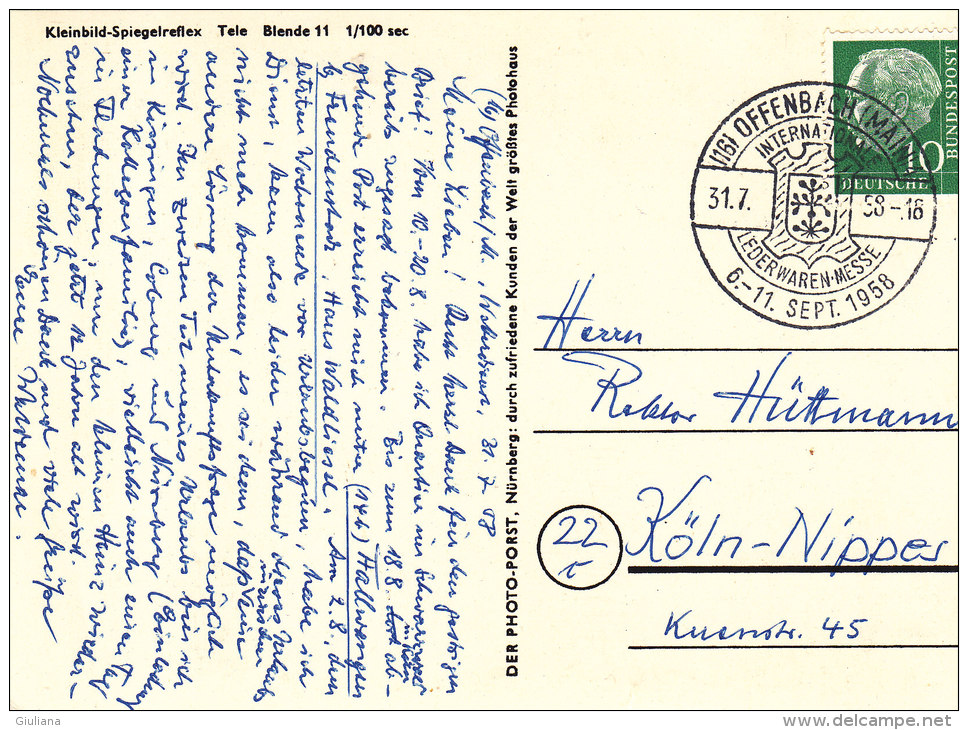 Kleinbild-Spiegelreflex Tele Blende 11 1/100 sec
(16) Offenbach/M., 31.7.58
Meine Lieben! Recht herzl. Dank für den gestrigen
Brief! Vom 10.-20.8. habe ich Quartier im Schwarzwald
bereits zugesagt bekommen. Bis zum 18.8. ab-
gehende Post erreicht mich unter (14b) Hallwangen
b. Freudenstadt, Haus Waldliesel. Am 2.8., dem
letzten Wochenende vor Urlaubsbeginn, habe ich
Dienst, kann also leider während dieses Urlaubs
nicht mehr kommen, es sei denn, daß eine
andere Lösung der Unterkunftsfrage möglich
wird. Den zweiten Teil meines Urlaubs bin ich
in Kissingen, Coburg und Nürnberg (Einladung
einer Kollegenfamilie), vielleicht auch einen Tag
in, um den kleinen Heinz wieder-
zusehen, der jetzt 12 Jahre alt wird.
Nochmals schönen Dank und viele Grüße
Eure
DER PHOTO-PORST, Nürnberg: durch zufriedene Kunden der Welt größtes Photohaus
(16) OFFENBACH (MAIN) 1
INTERNATIONALE
31.7.58-18
LEDERWAREN-MESSE
6.-11. SEPT. 1958
DEUTSCHE
BUNDESPOST
10
Herrn
Rektor Hüttmann
22
c
Köln-Nippes
Kuenstr. 45
Giuliana
www.delcampe.net